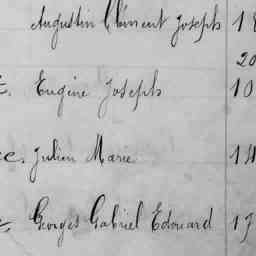 Augustin Clément Joseph 18
20
Eugène Joseph 10
Julien Marie 14
Georges Gabriel Edouard 17